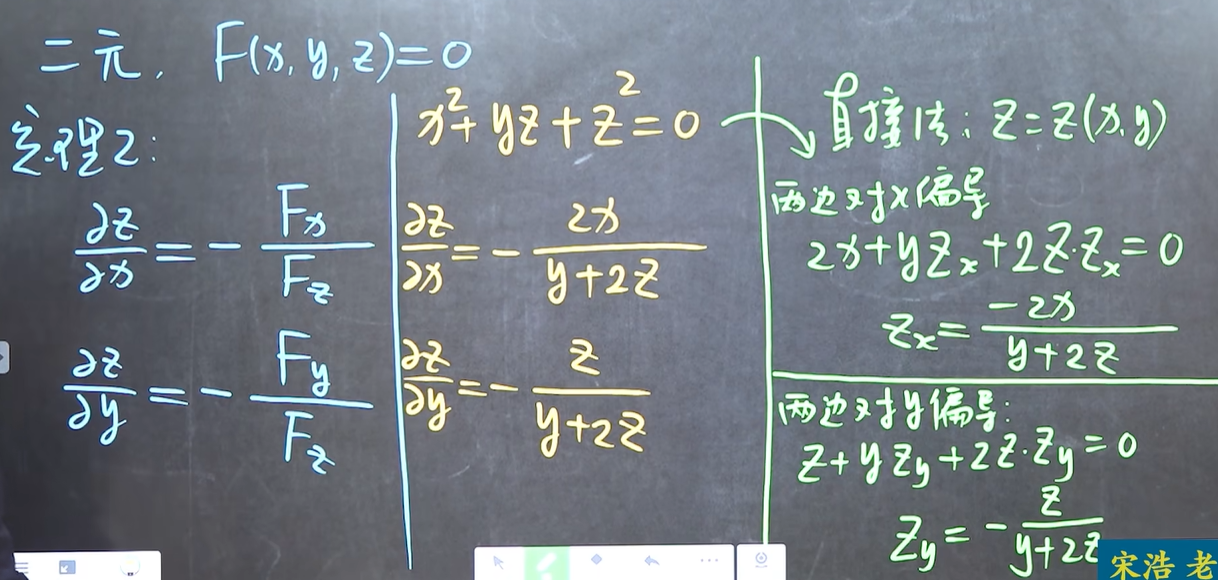 二元, F(x,y,z)=0
定理2:
∂z/∂x = - Fx/Fz
∂z/∂y = - Fy/Fz
x²+yz+z²=0
∂z/∂x = - 2x/(y+2z)
∂z/∂y = - z/(y+2z)
直接法: z=z(x,y)
两边对x偏导
2x+yZx+2z·Zx=0
Zx = -2x/(y+2z)
两边对y偏导:
z+yZy+2z·Zy=0
Zy = - z/(y+2z)
宋浩 老